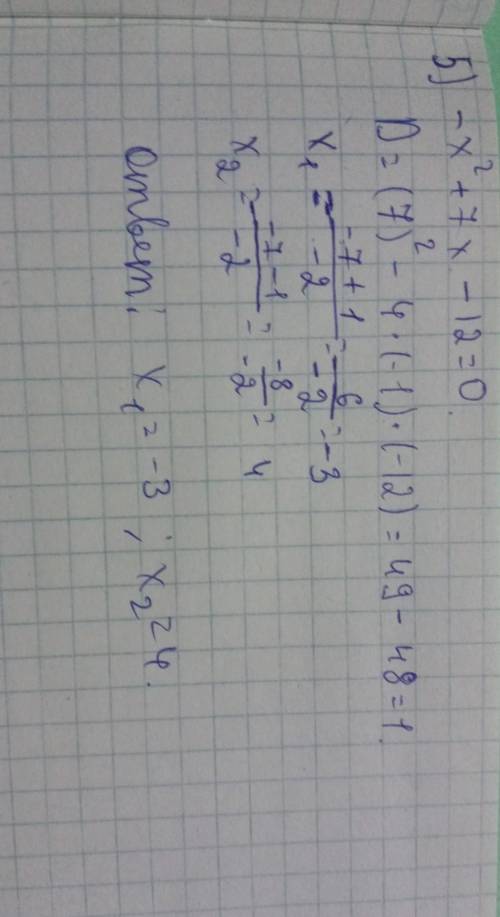 5) -x² + 7x - 12 = 0.
D = (7)² - 4·(-1)·(-12) = 49 - 48 = 1.
x₁ = (-7+1)/(-2) = 6/(-2) = -3
x₂ = (-7-1)/(-2) = (-8)/(-2) = 4
Ответ: x₁ = -3 ; x₂ = 4.